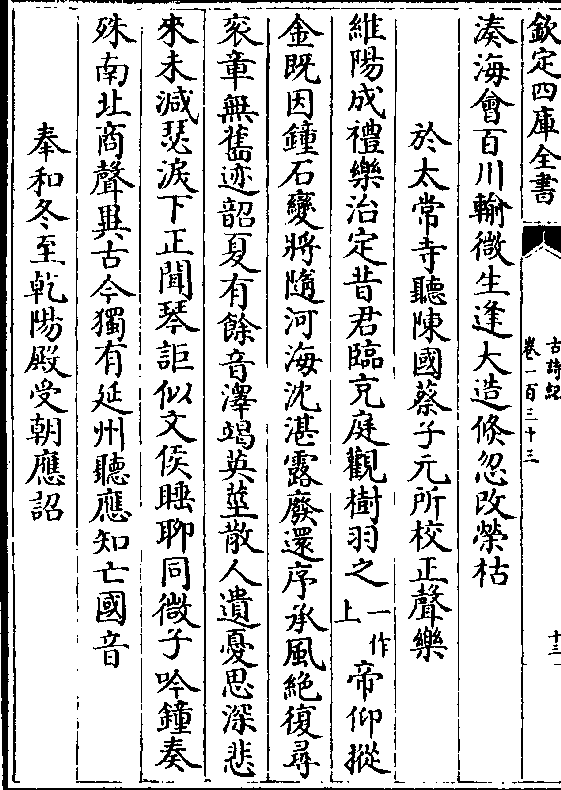 欽定四庫全書
古詩紀
卷一百三十三
十三
湊海會百川輸微生逢大造倐忽改榮枯
於太常寺聽陳國蔡子元所校正聲樂
維陽成禮樂治定昔君臨充庭觀樹羽之一作上帝仰摐
金既因鐘石變將隨河海沈湛露廢還序承風絶復尋
衮章無舊迹韶夏有餘音澤竭英莖散人遺憂思深悲
來未減瑟淚下正聞琴詎似文侯睡聊同微子吟鐘奏
殊南北商聲異古今獨有延州聽應知亡國音
奉和冬至乾陽殿受朝應詔